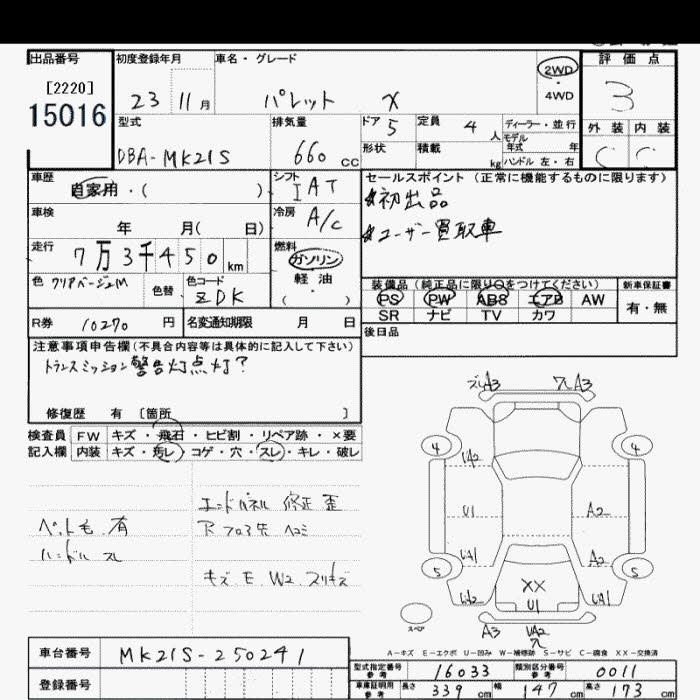 出品番号 初度登録年月 車名・グレード 評価点
[2220]
15016
23 11月 パレット X
2WD
4WD
3
型式 排気量 ドア 定員 ディーラー・並行
DBA-MK21S 660 CC 5 4人
モデル年式 年
形状 積載 kg ハンドル 左・右
外装 内装
C C
車歴 シフト セールスポイント (正常に機能するものに限ります)
自家用・( ) IAT
初出品
車検 冷房
年 月( 日) A/C
ユーザー買取車
走行 燃料
7万3千450km ガソリン
軽油
( )
色 クリアベージュM 色替 色コード ZDK
装備品 (純正品に限り○をつけてください) 新車保証書
PS PW ABS エアB AW 有・無
SR ナビ TV カワ
R券 10270 円 名変通知期限 月 日
後日品
注意事項申告欄 (不具合内容等は具体的に記入して下さい)
トランスミッション警告灯点灯?
修復歴 有 [箇所 ]
検査員 FW キズ・飛石・ヒビ割・リペア跡・×要
記入欄 内装 キズ・汚レ・コゲ・穴・スレ・キレ・破レ
エンドパネル 修正 歪
ペット毛 有
R フロア先 ヘコミ
ハンドル スレ
キズ E W2 スリキズ
ズレA3 スレA3
4 4
UA2
U1 A2
UA1 A2
5 5
UA2 XX UA1
U1
スペア
A3 UA2
A-キズ E-エクボ U-凹み W-補修跡 S-サビ C-腐食 XX-交換済
車台番号 MK21S-250241
登録番号
型式指定番号 参考 16033 類別区分番号 参考 0011
車庫証明用 参考 長さ 339 cm 幅 147 cm 高さ 173 cm